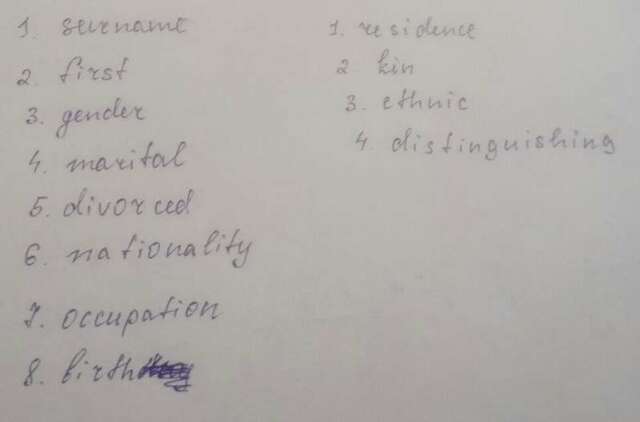 1. surname
2. first
3. gender
4. marital
5. divorced
6. nationality
7. occupation
8. birth
1. residence
2 kin
3. ethnic
4. distinguishing